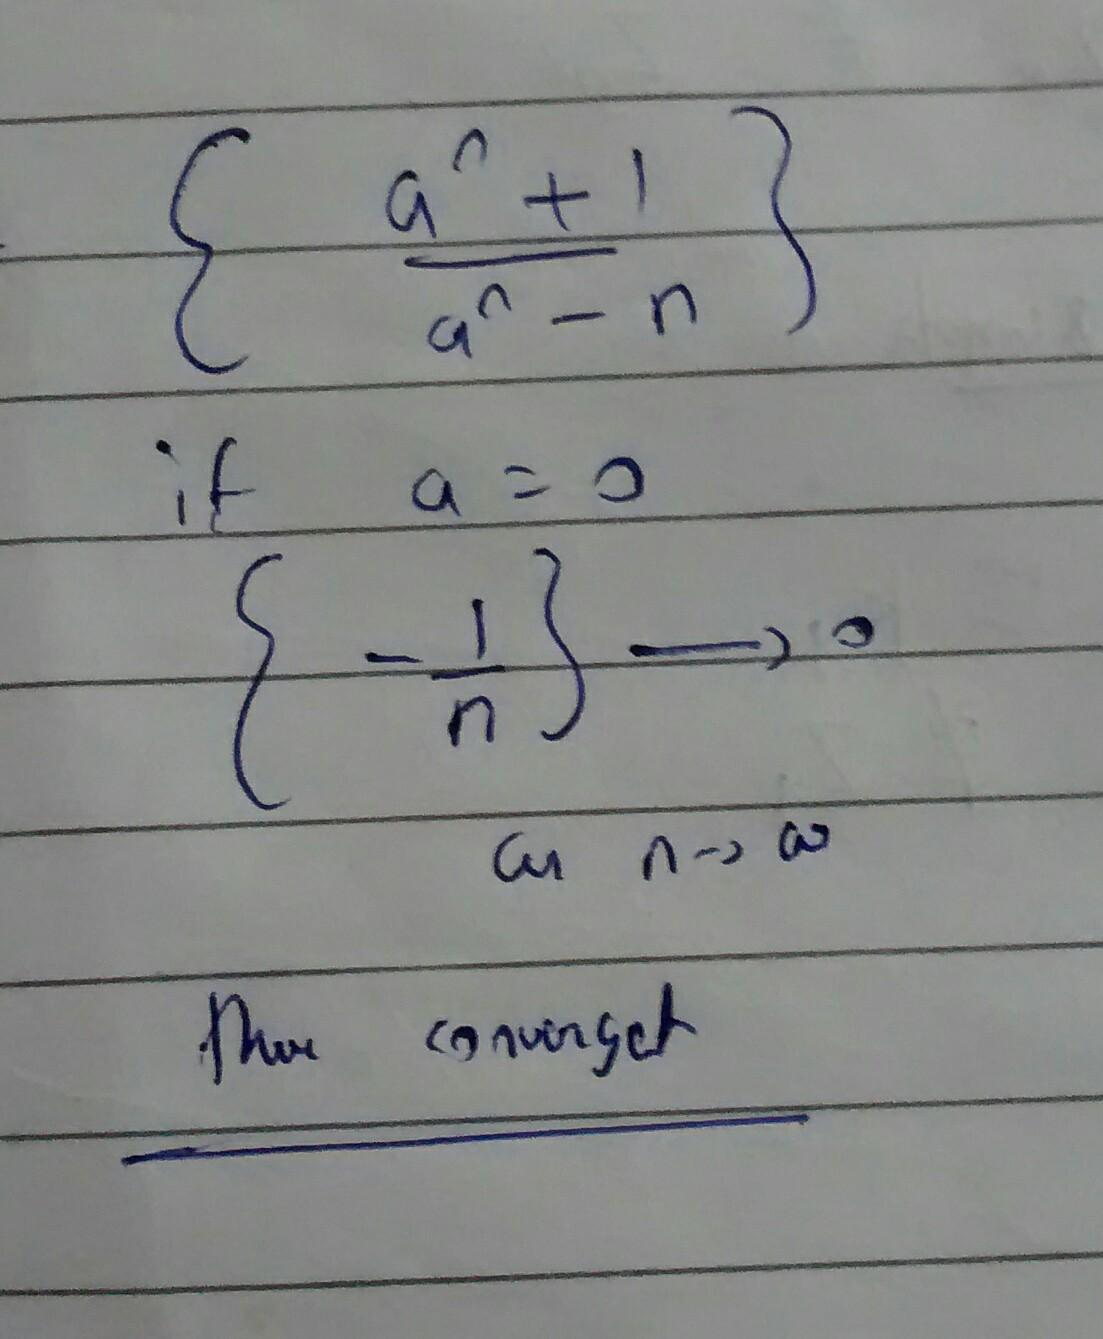 { (a^n + 1) / (a^n - n) }
if a = 0
{ - 1/n } → 0
as n → ∞
converges